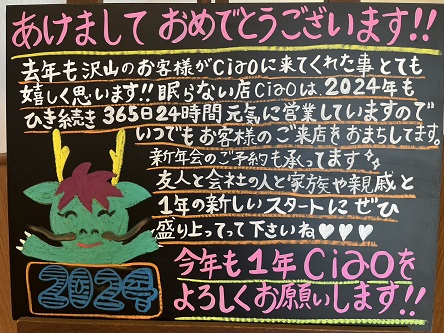 あけまして おめでとうございます!!
去年も沢山のお客様がCiaoに来てくれた事とても
嬉しく思います!! 眠らない店Ciaoは2024年も
ひき続き365日24時間元気に営業していますので
いつでもお客様のご来店をおまちしてます。
新年会のご予約も承ってます
友人と会社の人と家族や親戚と
1年の新しいスタートにぜひ
盛り上ってって下さいね♥♥♥
2024
今年も1年Ciaoを
よろしくお願いします!!